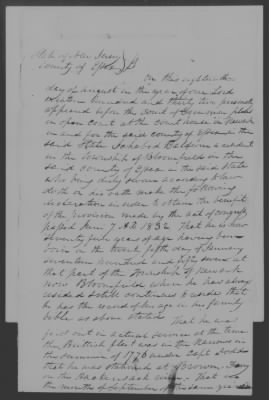 State of New Jersey
County of Essex } SS
On this eighteenth
day of August in the year of our Lord
Eighteen hundred and thirty two personally
appeared before the Court of Common pleas
in open Court at the Court house in Newark
in and for the said County of Essex in the
said State Ichabod Baldwin a resident
in the Township of Bloomfield in the
said County of Essex in the said State
who being duly sworn according to law
doth on his oath make the following
declaration in order to obtain the benefit
of the provision made by the act of congress
passed June 7 AD 1832. That he is now
seventy five years of age having been
born in the twenty fifth day of January
seventeen hundred and fifty seven at
that part of the Township of Newark
now Bloomfield where he has always
resided & still continues to reside that
he has the record of his age in his family
bible as above stated
That he was
first out in actual service at the time
the British fleet was in the Narrows
in the summer of 1776 under Capt Dodd
that he was stationed at Brown Ferry
on the Hackensack river. That in
the month of September of the same year